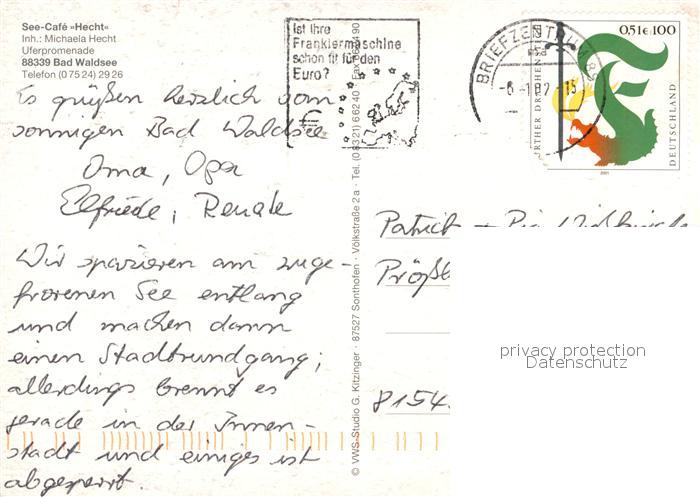 See-Café »Hecht«
Inh.: Michaela Hecht
Uferpromenade
88339 Bad Waldsee
Telefon (0 75 24) 29 26
Es grüßen herzlich vom
sonnigen Bad Waldsee
Oma, Opa
Elfriede, Renate
Wir spazieren am zuge-
frorenen See entlang
und machen dann
einen Stadtrundgang;
allerdings brennt es
gerade in der Innen-
stadt und einiges ist
abgesperrt.
© VWS-Studio G. Kitzinger · 87527 Sonthofen · Völkstraße 2a · Tel. (08321) 66240 · Fax
Ist Ihre
Frankiermaschine
schon fit für den
Euro?
€
BRIEFZENTRUM 88
-6.-1.02.-15
0,51 € 100
DEUTSCHLAND
2001
Patrick + Pia
8154
privacy protection
Datenschutz